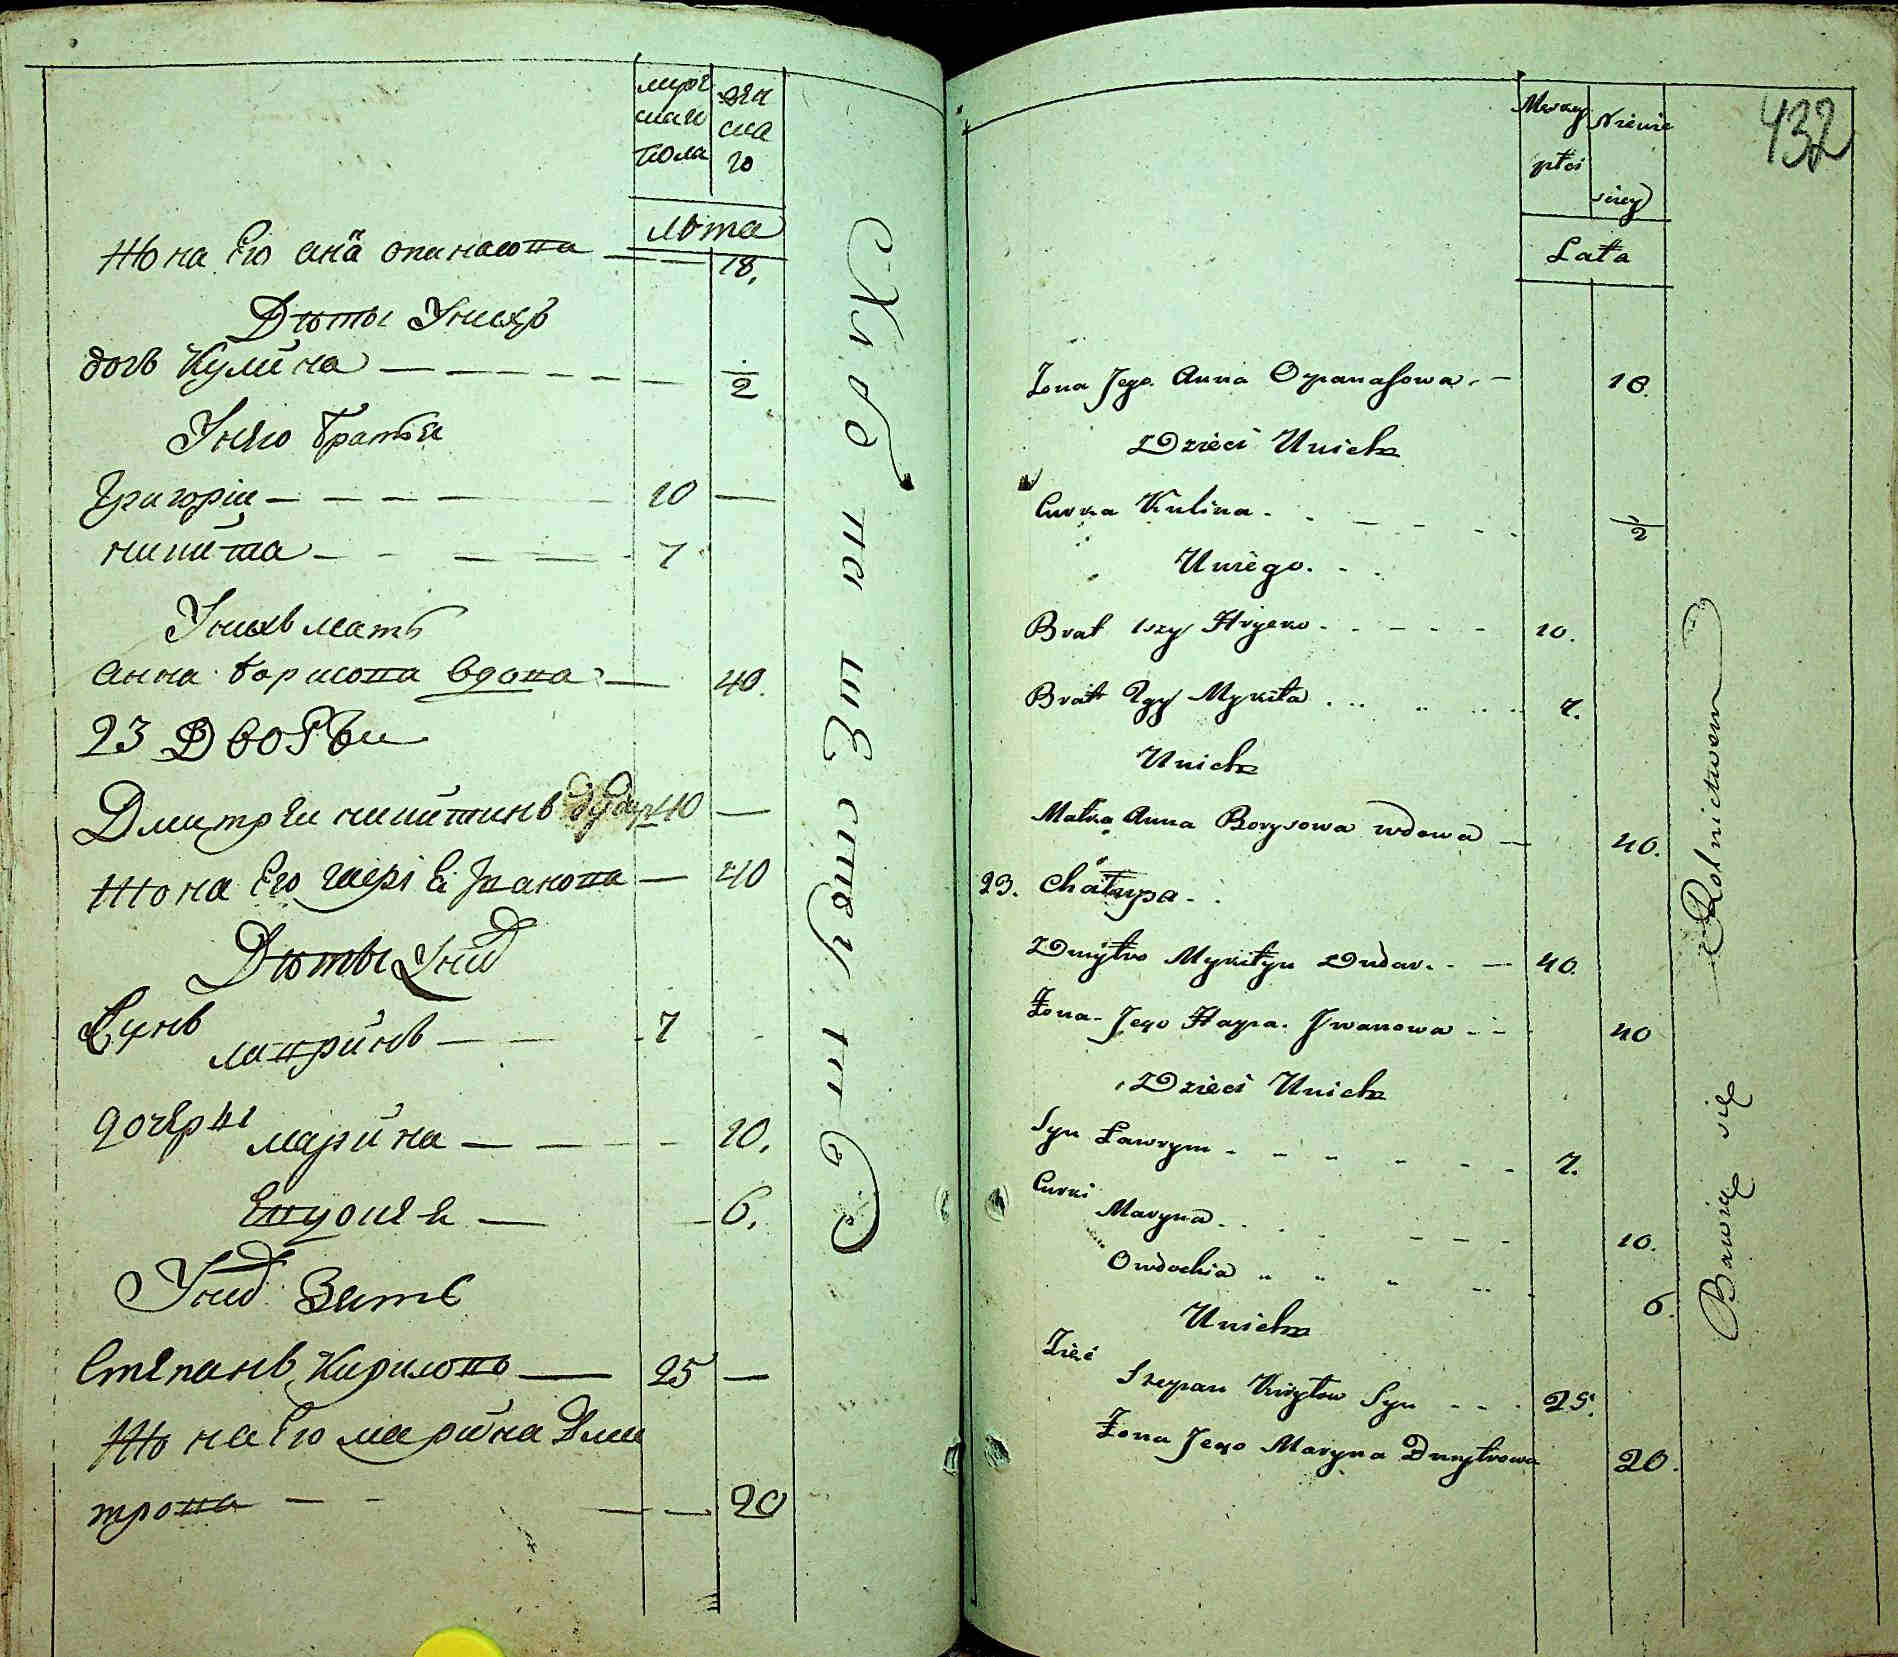 мужескаго пола
женскаго
лѣта
Жона Его аная опанасова — 18.
Дѣты Унихъ
дочъ Кулина — 1/2
Унего братья
Григорій — 10 —
никита — 7
Унихъ мать
анна борисова вдова — 40.
23 Дворъ
Дмитрей никитинъ дударъ 40 —
Жона Его Иванова — 40
Дѣты Унихъ
Сынъ
лавринъ — 7
дочеры
марина — 10.
Евдокея — 6.
Унихъ Зять
Степанъ Кириловъ — 25 —
Жона Его марина Дми
трова — 20
432
Męzkey płci
Niewieściey
Lata
Żona Jego Anna Opanasowa. — 18.
Dzieci Unich
Curka Kulina. — 1/2
Uniego.
Brat 1szy Hryćko. — 10.
Brat 2gy Mykita — 7.
Unich
Matka Anna Borysowa wdowa — 40.
23. Chałupa.
Dmytro Mykityn Dudar. — 40.
Żona Jego Hapa. Jwanowa — 40
Dzieci Unich
Syn Ławryn — 7.
Curki
Maryna — 10.
Owdochia — 6.
Unich
Zięć
Stepan Kiryłow Syn — 25.
Żona Jego Maryna Dmytrowa 20.
Bawią się Rolnictwem